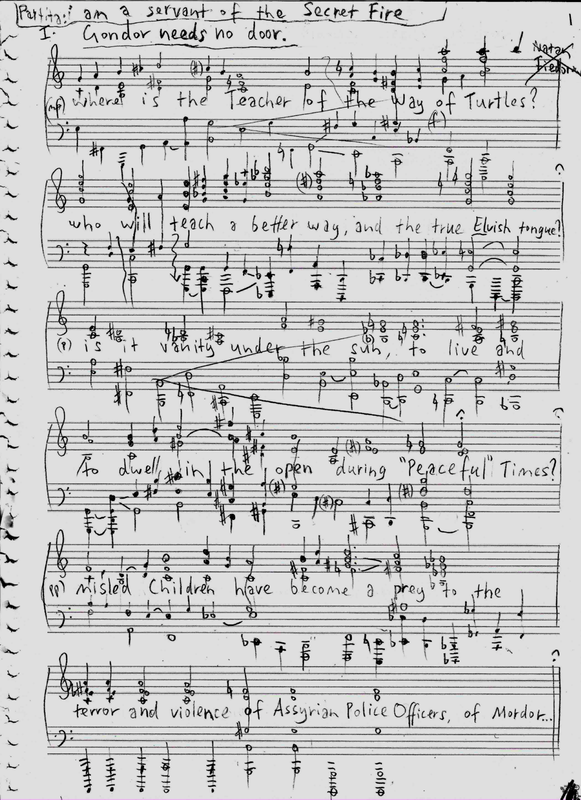 Partita: I am a servant of the Secret Fire
1
I. Gondor needs no door.
Natan
(mp) where is the Teacher of the Way of Turtles?
(f)
who will teach a better way, and the true Elvish tongue?
(p) is it vanity under the sun, to live and
to dwell in the open during "Peaceful" Times?
(pp) misled Children have become a prey to the
terror and violence of Assyrian Police Officers, of Mordor...